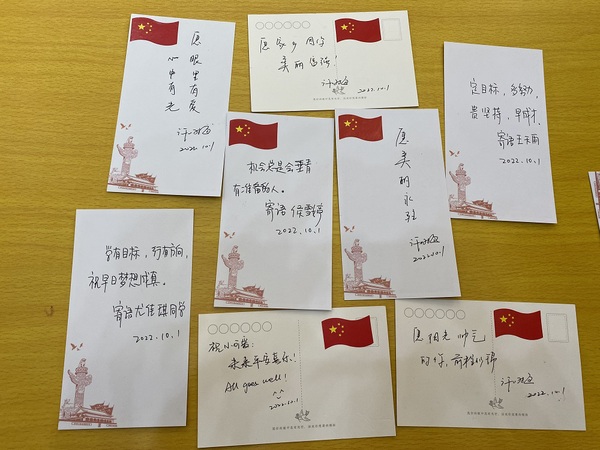 愿眼里有爱
心中有光
2022.10.1
愿家乡
美丽
2022.10.1
定目标,
贵坚持,早成才,
寄语王天雨
2022.10.1
机会总是会垂青
有准备的人。
寄语 侯雪婷
2022.10.1
愿美丽永驻
2022.10.1
学有目标,行有方向,
祝早日梦想成真。
寄语尤佳琪同学
2022.10.1
祝小可爱:
未来平安喜乐!
All goes well!
^^
2022.10.1
愿阳光帅气
的你,前程似锦
2022.10.1